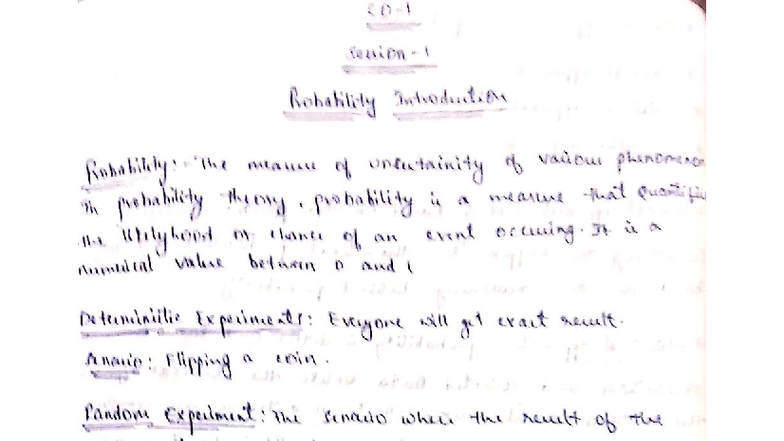 CO-1
Session-1
Probability Introduction
Probability:- The measure of uncertainity of various phenomenon
in probability theory, probability is a measure that quantifies
the likelyhood or chance of an event occuring. It is a
numerical value between 0 and 1
Deterministic Experiments: Everyone will get exact result.
Senario: Flipping a coin.
Random Experiment: The senario where the result of the